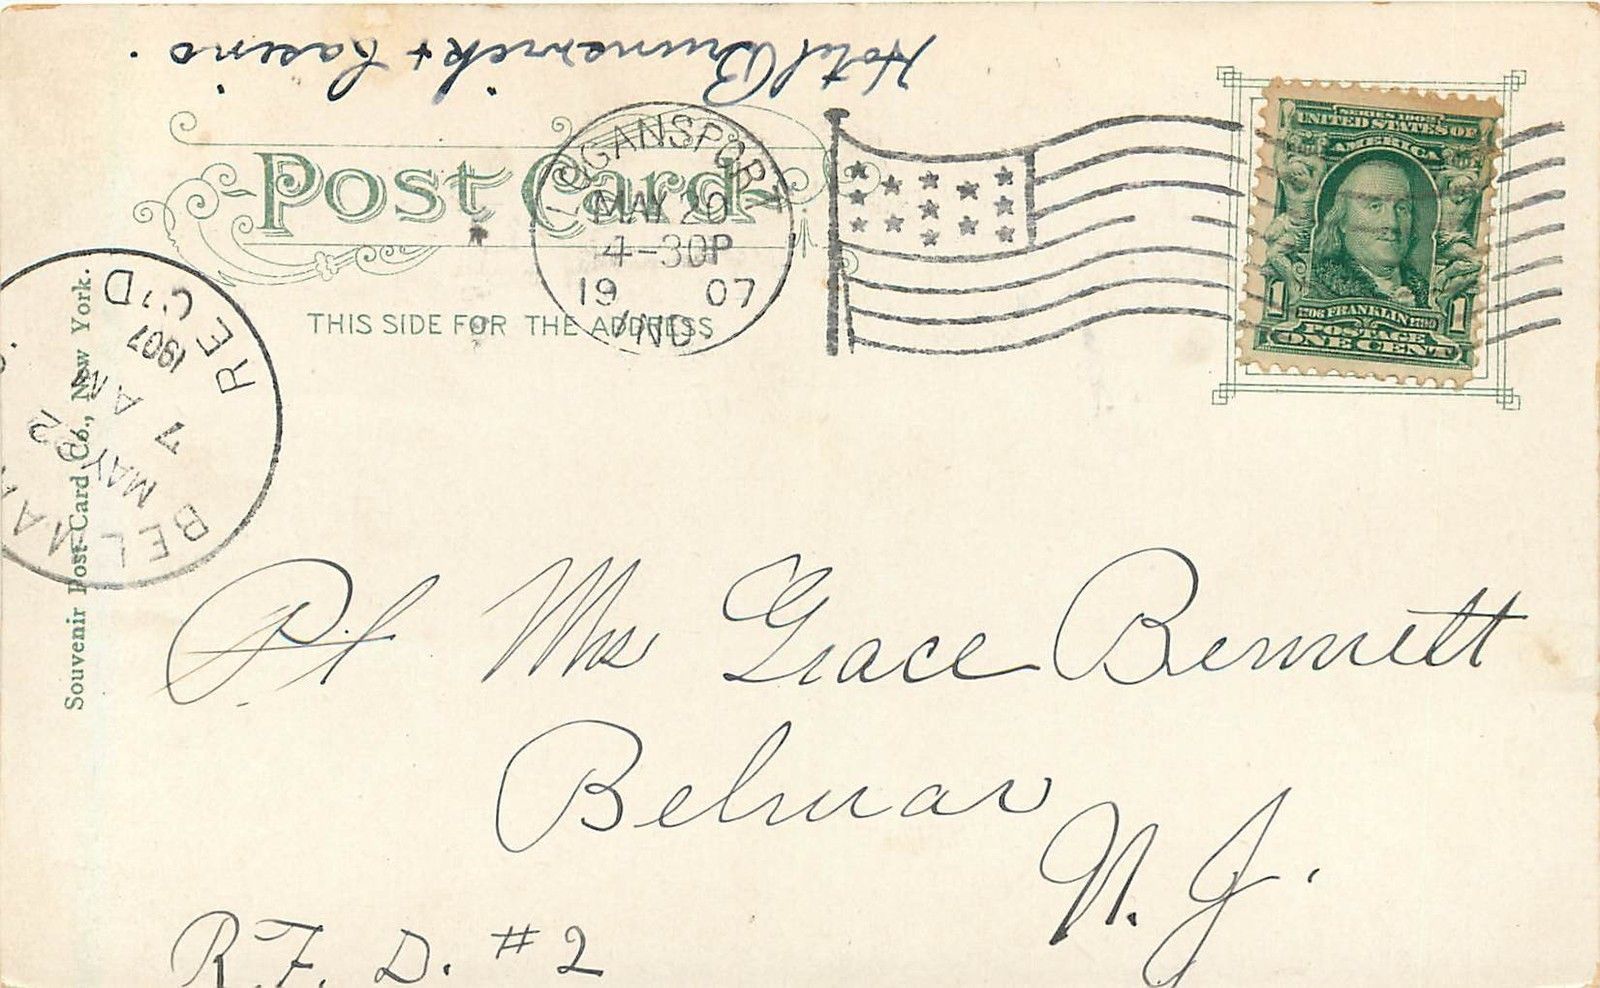 Hotel Brunswick & Casino.
Post Card
THIS SIDE FOR THE ADDRESS
LOGANSPORT
MAY 20
4-30P
19 07
IND.
SERIES 1902
UNITED STATES OF
AMERICA
FRANKLIN
1 1
POSTAGE
ONE CENT
REC'D
1907
7 AM
MAY 22
BELMAR
Souvenir Post Card Co., New York.
Mrs Grace Bennett
Belmar
N. J.
R. F. D. #2